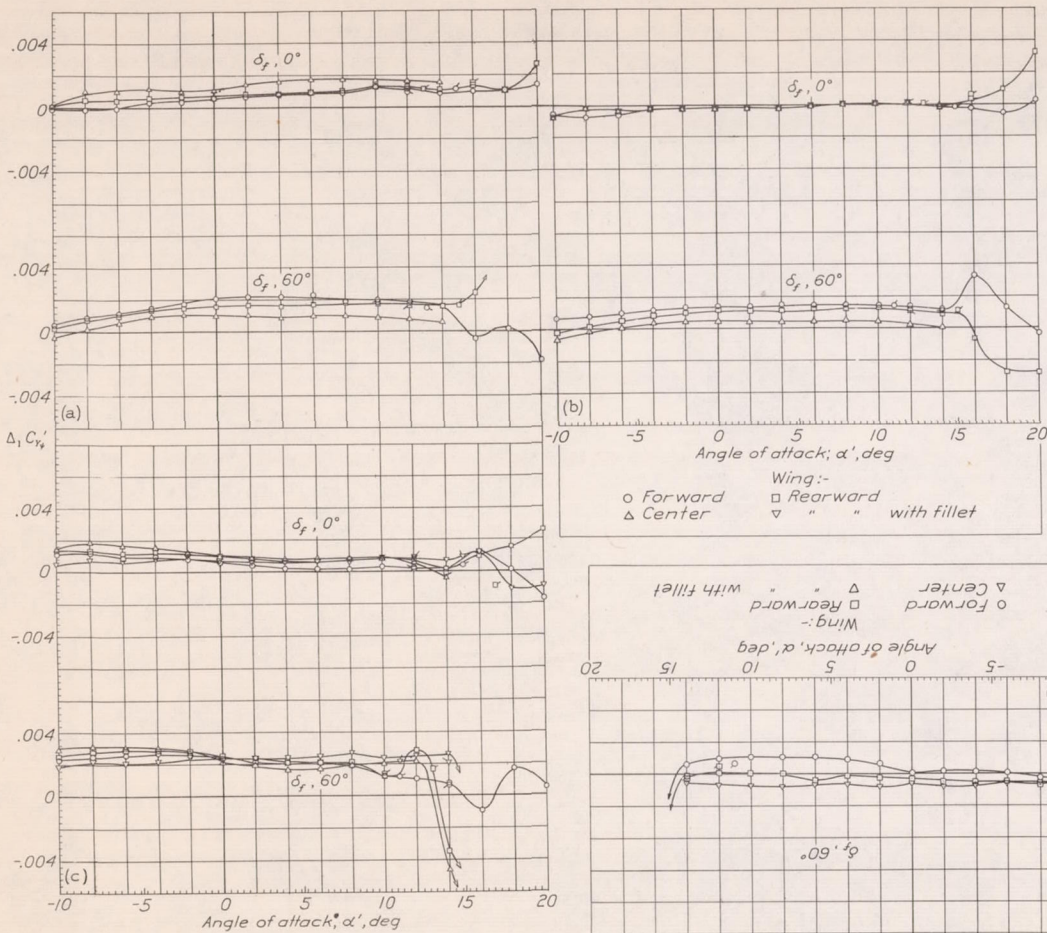 .004
0
-.004
δf, 0°
.004
0
-.004
δf, 60°
(a)
δf, 0°
δf, 60°
(b)
-10 -5 0 5 10 15 20
Angle of attack, α', deg
Wing:-
○ Forward □ Rearward
△ Center ▽ " " with fillet
Δ₁ CY₄'
.004
0
-.004
δf, 0°
.004
0
-.004
δf, 60°
(c)
-10 -5 0 5 10 15 20
Angle of attack, α', deg
○ Forward □ Rearward
△ Center ▽ " " with fillet
Wing:-
Angle of attack, α', deg
20 15 10 5 0 -5
δf, 60°